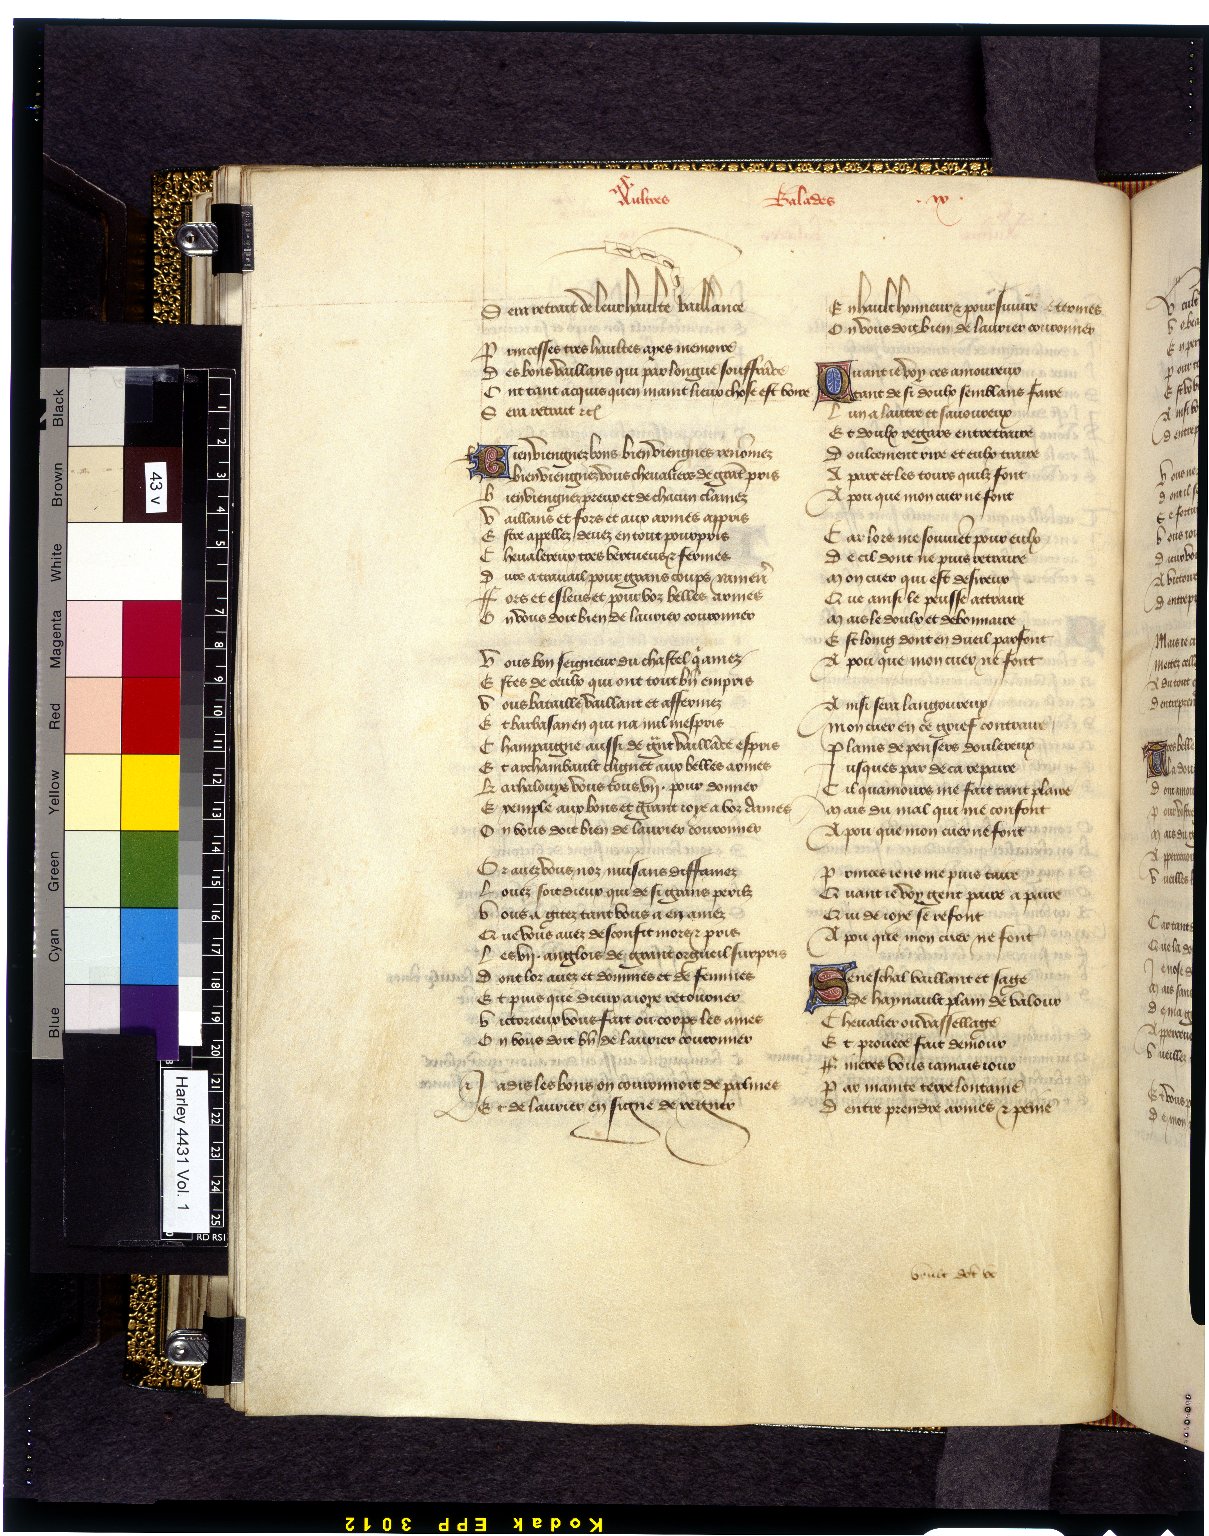 Aultres Balades
Sera retrait de leur haulte vaillance
Princesses tres haultes ayes memoire
Des bons vaillans qui par longue souffrāce
Ont tant acquis quen maint lieux chose est voire
Sera retrait etc
Bien viengnez bons bien viengnes renōmez
bien viengnez vous chevaliers de grāt pris
Bien viengnez preux et de chacun clamez
Vaillans et fors et aux armes appris
Estre appellez devez en tout pourpris
Chevalereux tres vertueus et fermes
Durs a travail pour grans coups ramen̄
Fors et esleus et pour voz belles armes
On vous doit bien de laurier couronner
Vous bon seigneur du chastel q̄ amez
Estes de ceulx qui ont tout bn̄ empris
Vous bataille vaillant et affermez
Et barbasan en qui na nul mespris
Champaigne aussi de grāt vaillāce espris
Et archambault clignet aux belles armes
Karaloups vous tous vij. pour donner
Exemple aux bons et grant ioye a voz dames
On vous doit bien de laurier couronner
Or avez vous noz nuisans diffamez
Louez soit dieux qui de si grans perilz
Vous a gitez tant vous a en amez
Que vous avez desconfit mors et pris
Les vij. anglois de grant orgueil surpris
Dont lor avez et dōmes et de femmes
Et puis que dieux a ioye retourner
Victorieux vous fait ou corps les ames
On vous doit bn̄ de laurier couronner
Jadis les bons on couronnoit de palmes
Et de laurier en signe de regner
En hault honneur et poursuivre ces termes
On vous doit bien de laurier couronner
Quant ie voy ces amoureux
tant de si doulx semblans faire
Lun a lautre et savoureux
Et doulx regars entretraire
Doulcement rire et eulx traire
A part et les tours quilz font
A pou que mon cuer ne font
Car lors me souviēt pour eulx
De cil dont ne puis retraire
Mon cuer qui est desireux
Que ainsi le peusse attraire
Mais le doulx et debonnaire
Est loing dont en dueil parfont
A pou que mon cuer ne font
Ainsi sera langoureux
Mon cuer en ce grief contraire
Plains de pensers doulereux
Jusques par deca repaire
Cil quamours me fait tant plaire
Mais du mal qui me confont
A pou que mon cuer ne font
Princes ie ne me puis taire
Quant ie voy gent paire a paire
Qui de ioye se refont
A pou que mon cuer ne font
Seneschal vaillant et sage
de haynault plain de valour
Chevalier ou vassellage
Et prouece fait demour
Finerez vous iamais iour
Par mainte terre lontaine
Dentreprendre armes et peine
43 v
Harley 4431 Vol. 1
Black
Brown
White
Magenta
Red
Yellow
Green
Cyan
Blue
1
2
3
4
5
7
8
9
10
11
12
13
14
15
16
17
18
19
20
21
22
23
24
25
Kodak EPP 3012